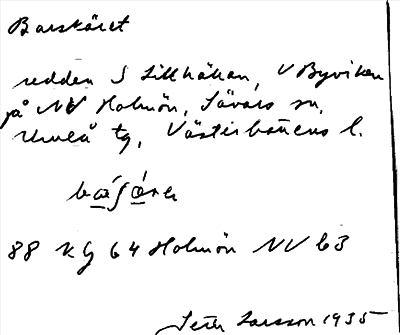 Barskäret
redden S Lillhällan, V Byviken
på NV Holmön, Sävars sn,
Umeå tg, Västerbottens l.
88 Kg 64 Holmön NV b3
Seth Larsson 1935